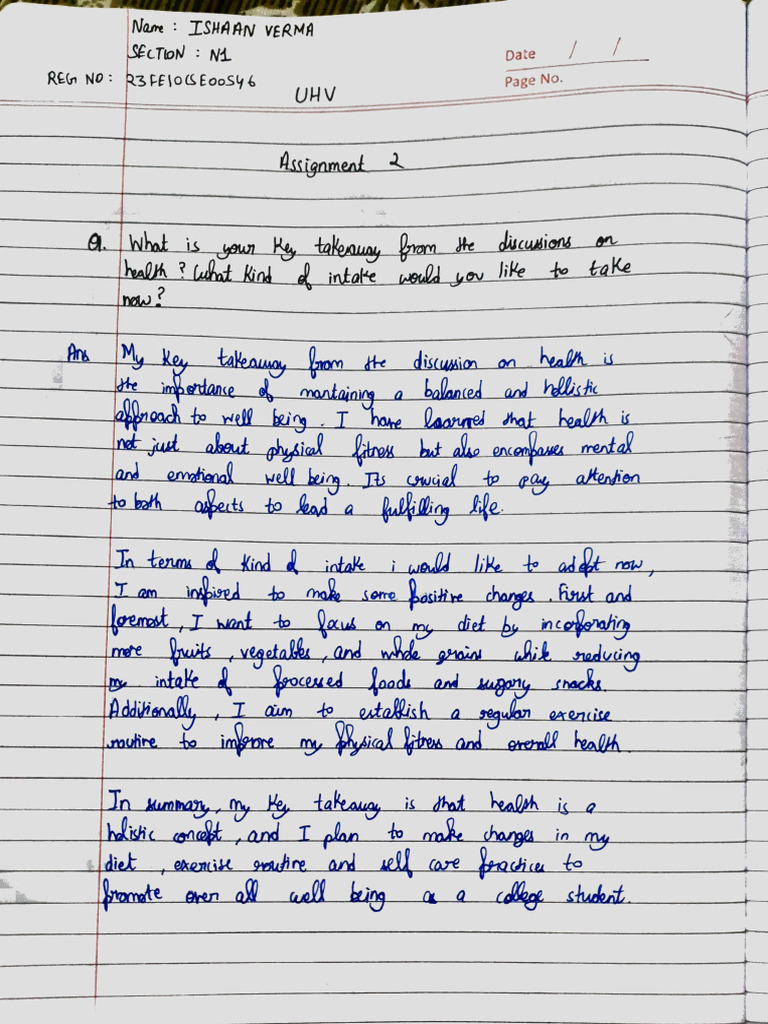 Name : ISHAAN VERMA
SECTION : N1
Date / /
REG NO : 23FE10CSE00546
Page No.
UHV
Assignment 2
Q. What is your key takeaway from the discussions on
health? What kind of intake would you like to take
now?
Ans My key takeaway from the discussion on health is
the importance of mantaining a balanced and hollistic
approach to well being. I have learned that health is
not just about physical fitness but also encompasses mental
and emotional well being. Its crucial to pay attention
to both aspects to lead a fulfilling life.
In terms of kind of intake i would like to adopt now,
I am inspired to make some positive changes. First and
foremost, I want to focus on my diet by incorporating
more fruits, vegetables, and whole grains while reducing
my intake of processed foods and sugary snacks.
Additionally, I aim to establish a regular exercise
routine to improve my physical fitness and overall health
In summary, my key takeaway is that health is a
holistic concept, and I plan to make changes in my
diet, exercise routine and self care practices to
promote over all well being as a college student.